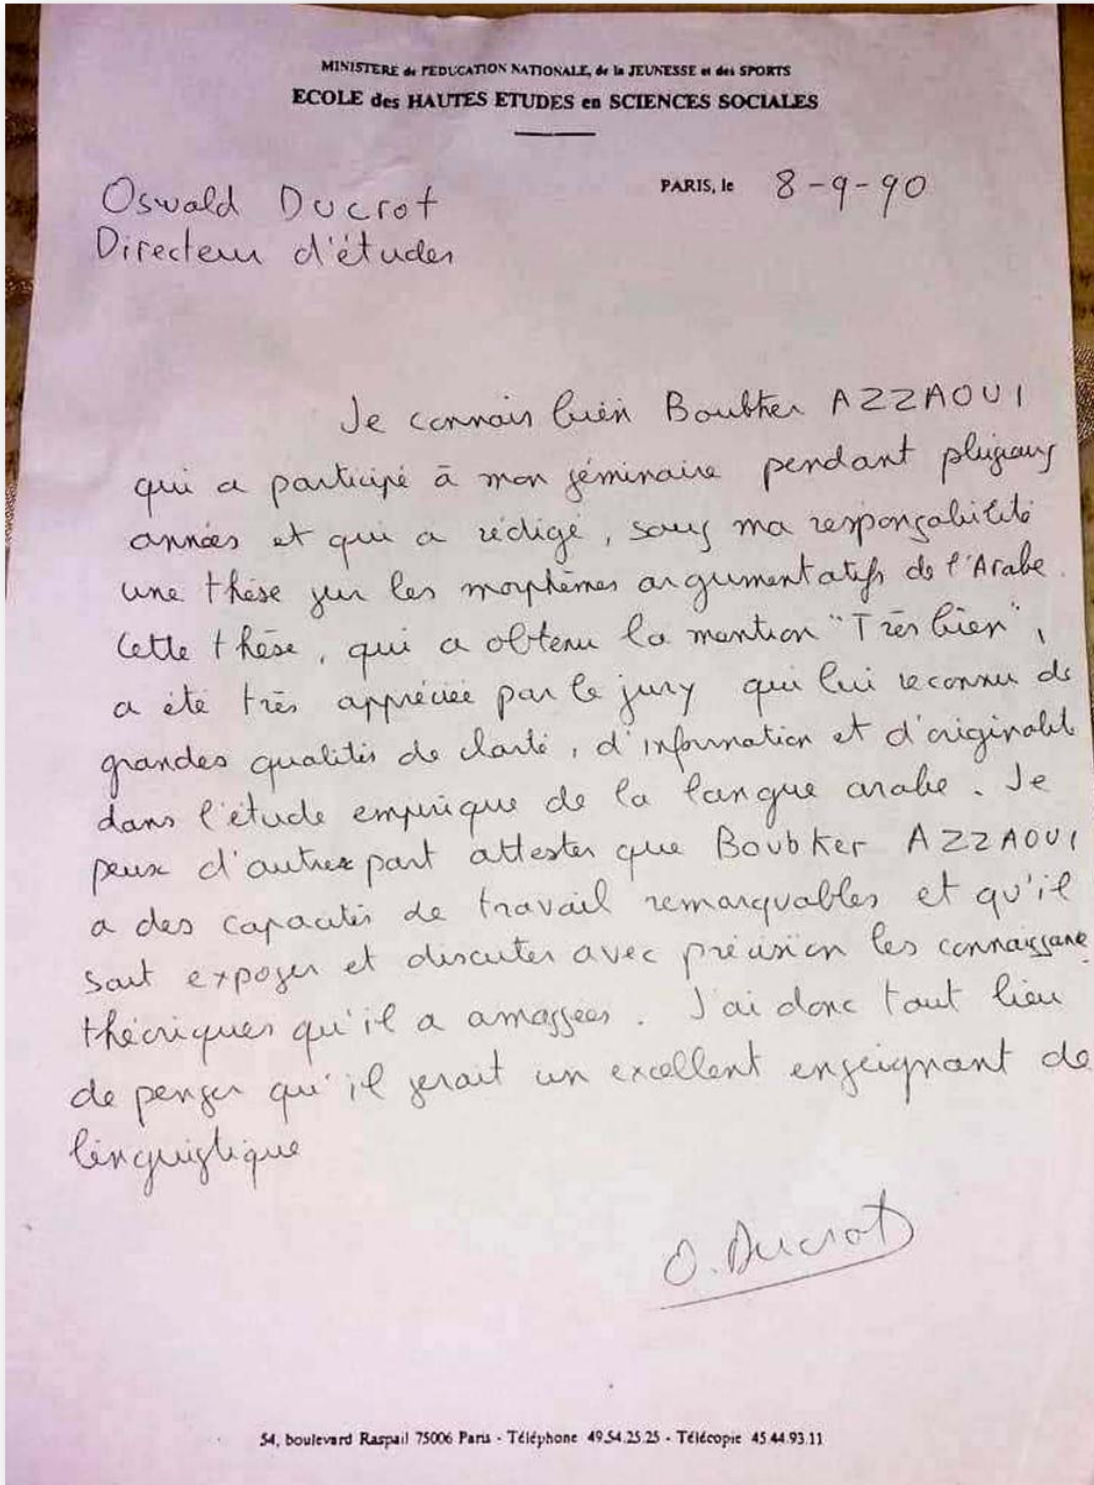 MINISTERE de l'EDUCATION NATIONALE, de la JEUNESSE et des SPORTS
ECOLE des HAUTES ETUDES en SCIENCES SOCIALES
PARIS, le 8-9-90
Oswald Ducrot
Directeur d'études
Je connais bien Boubker AZZAOUI
qui a participé à mon séminaire pendant plusieurs
années et qui a rédigé, sous ma responsabilité
une thèse sur les morphèmes argumentatifs de l'Arabe.
Cette thèse, qui a obtenu la mention "Très bien",
a été très appréciée par le jury qui lui reconnu de
grandes qualités de clarté, d'information et d'originalité
dans l'étude empirique de la langue arabe. Je
peux d'autre part attester que Boubker AZZAOUI
a des capacités de travail remarquables et qu'il
sait exposer et discuter avec précision les connaissance
théoriques qu'il a amassées. J'ai donc tout lieu
de penser qu'il serait un excellent enseignant de
linguistique
O. Ducrot
54, boulevard Raspail 75006 Paris - Téléphone 49.54.25.25 - Télécopie 45.44.93.11